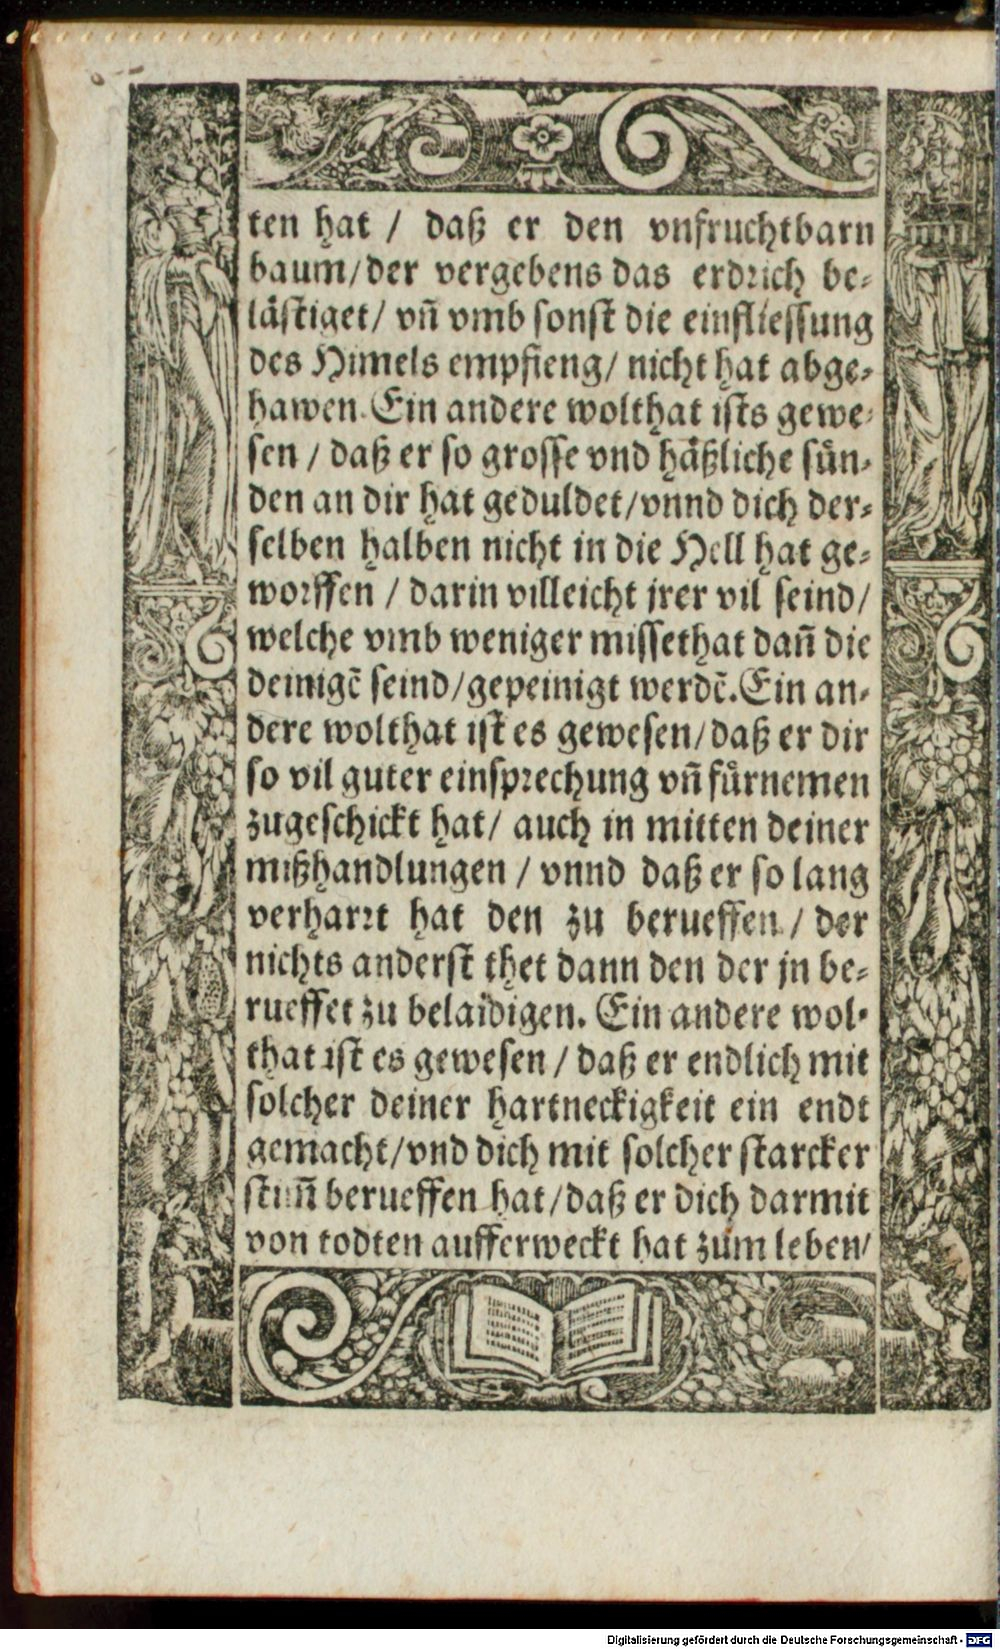 ten hat / daß er den vnfruchtbarn
baum/der vergebens das erdrich be-
lästiget/ vñ vmb sonst die einfliessung
des Himels empfieng/ nicht hat abge-
hawen. Ein andere wolthat ists gewe-
sen / daß er so grosse vnd häßliche sün-
den an dir hat geduldet/vnnd dich der-
selben halben nicht in die Hell hat ge-
worffen / darin villeicht jrer vil seind/
welche vmb weniger missethat dañ die
deinigē seind/gepeinigt werdē. Ein an-
dere wolthat ist es gewesen/daß er dir
so vil guter einsprechung vñ fürnemen
zugeschickt hat/ auch in mitten deiner
mißhandlungen / vnnd daß er so lang
verharrt hat den zu berueffen / der
nichts anderst thet dann den der jn be-
rueffet zu belaidigen. Ein andere wol-
that ist es gewesen / daß er endlich mit
solcher deiner hartneckigkeit ein endt
gemacht/vnd dich mit solcher starcker
stim̃ berueffen hat/daß er dich darmit
von todten aufferweckt hat zum leben/
Digitalisierung gefördert durch die Deutsche Forschungsgemeinschaft - DFG